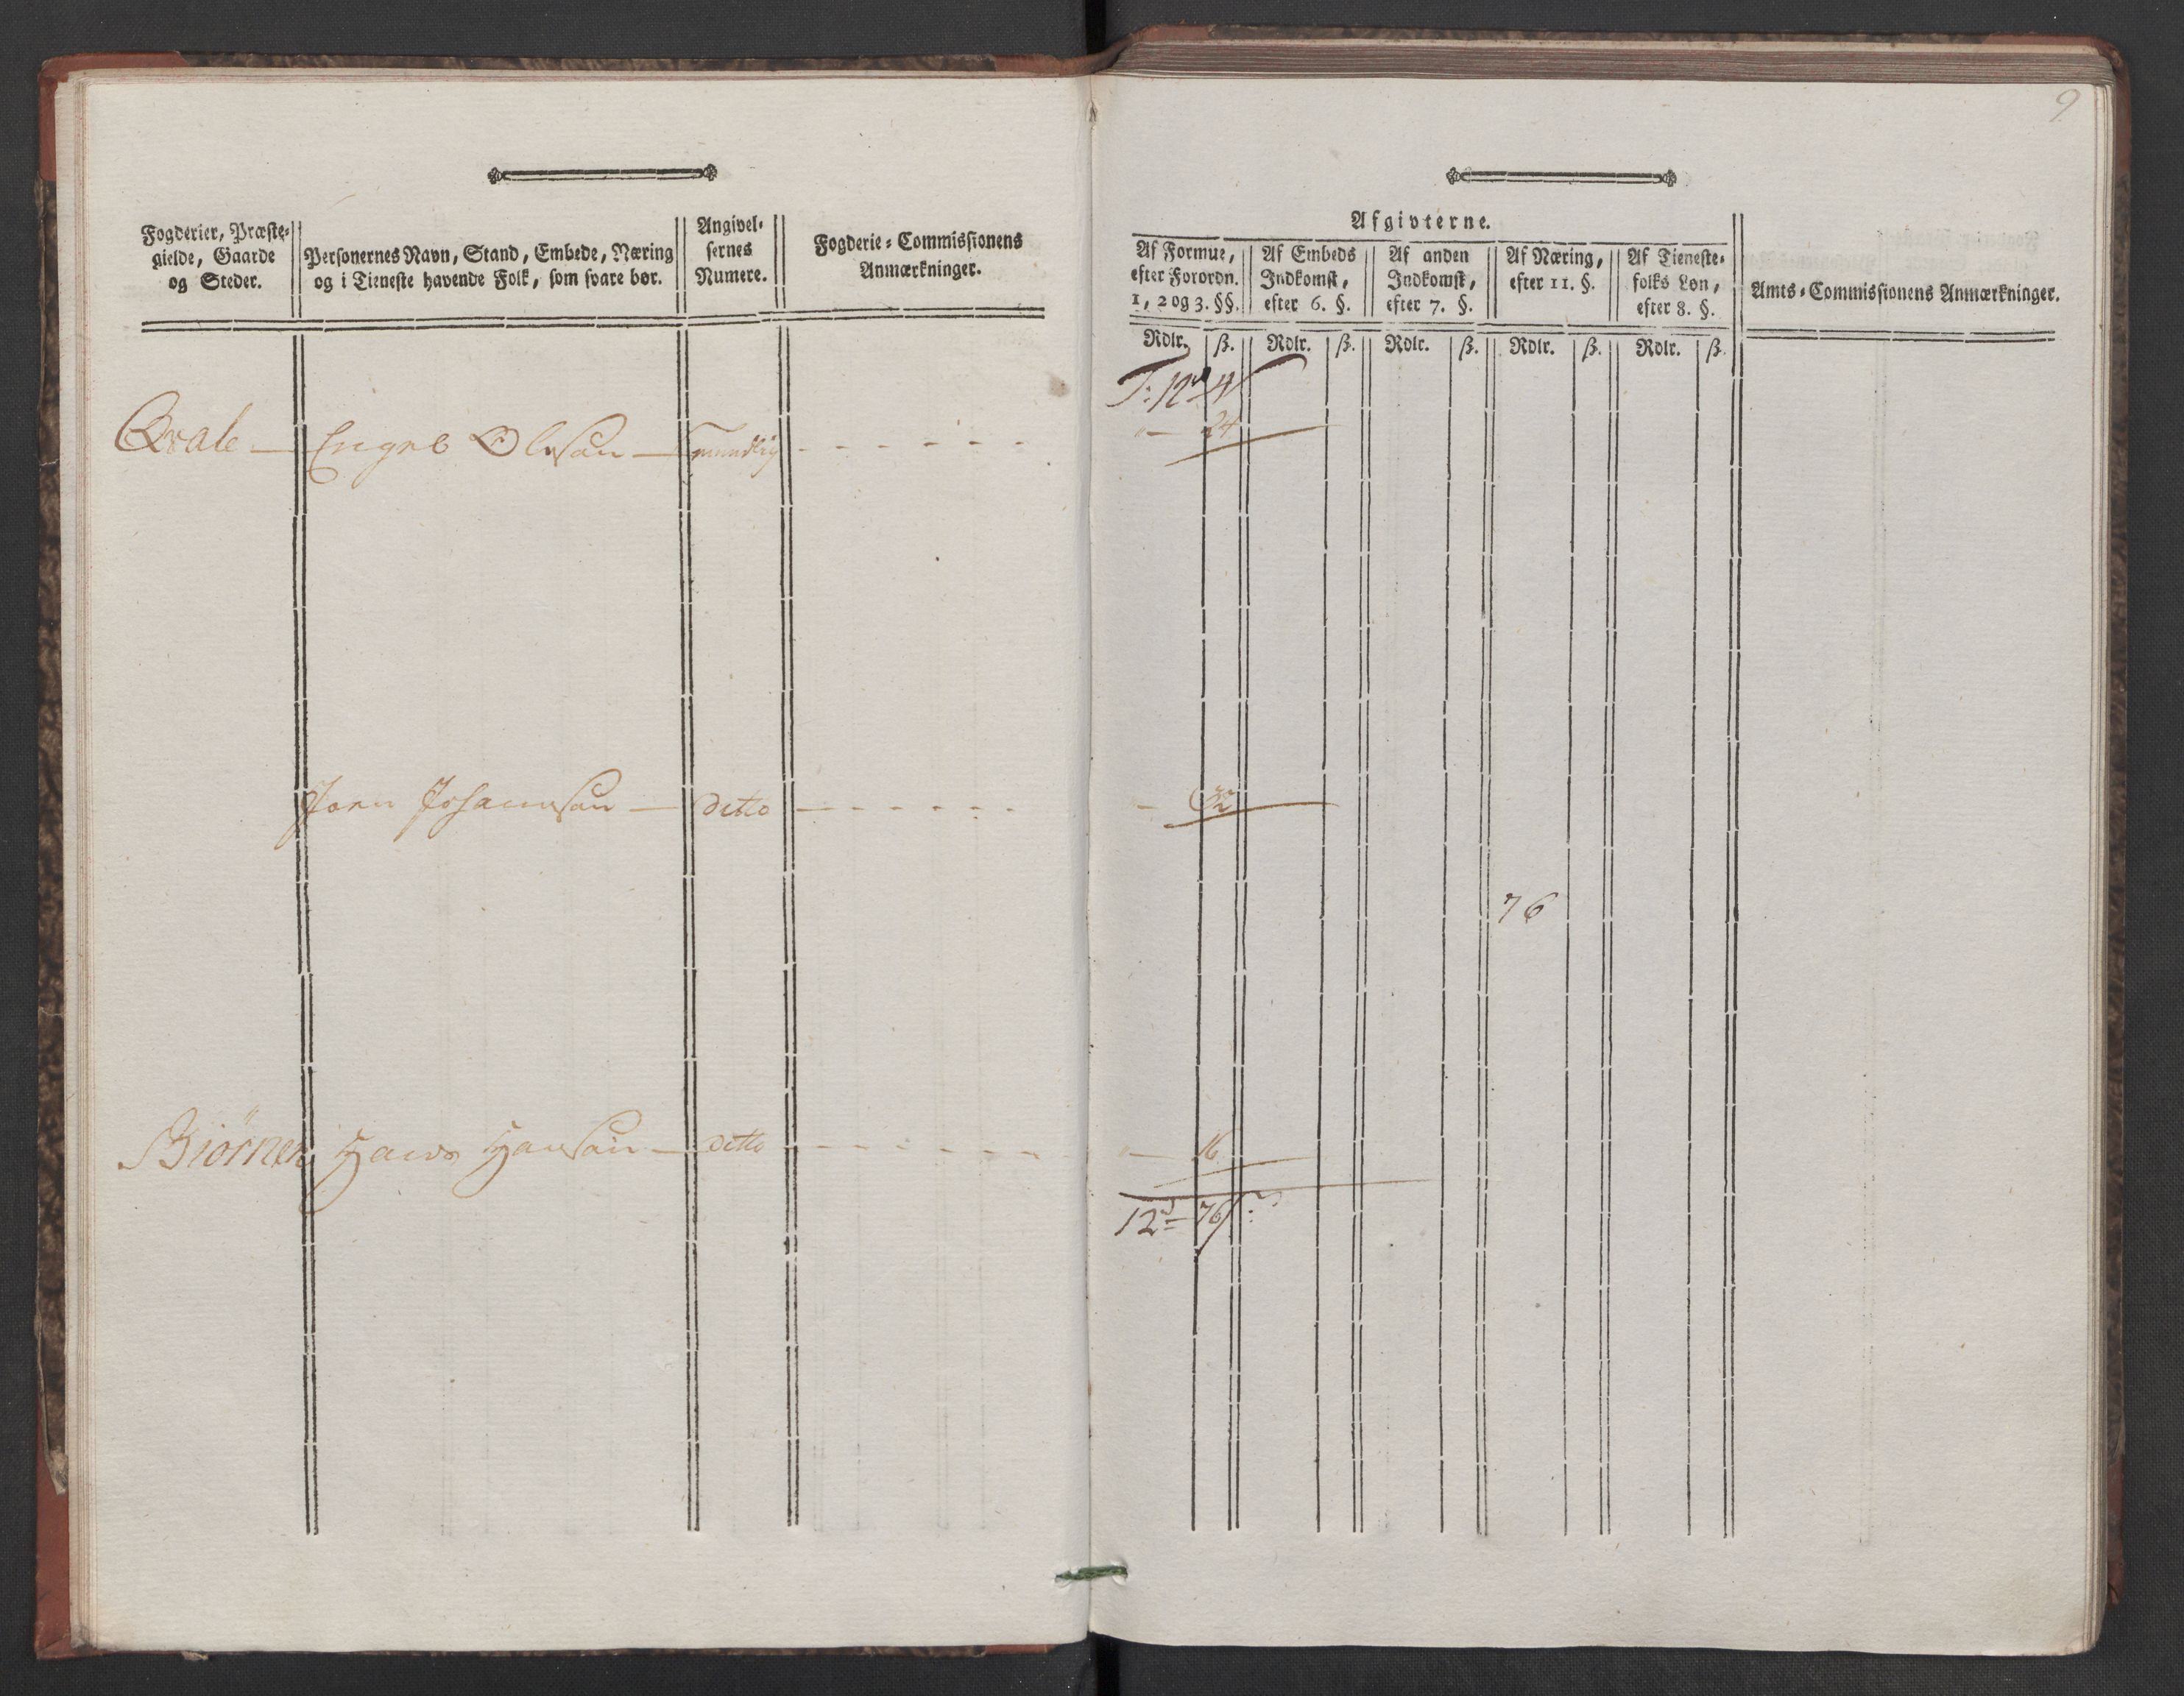 Fogderier, Præste-
gielde, Gaarde
og Steder.
Personernes Navn, Stand, Embede, Næring
og i Tieneste havende Folk, som svare bør.
Angivel-
sernes
Numere.
Fogderie-Commissionens
Anmærkninger.
Qvale — Engel Olsøn — mundtlig
Jørn Johannsøn — ditto
Biörnen Hans Hansøn — ditto
9
Afgivterne.
Af Formue,
efter Forordn.
1, 2 og 3. §§.
Af Embeds
Indkomst,
efter 6. §.
Af anden
Indkomst,
efter 7. §.
Af Næring,
efter 11. §.
Af Tieneste-
folks Løn,
efter 8. §.
Amts-Commissionens Anmærkninger.
Rdlr. ß. Rdlr. ß. Rdlr. ß. Rdlr. ß. Rdlr. ß.
T: 12 4
— 24
— 32
76
— 16
12 — 76